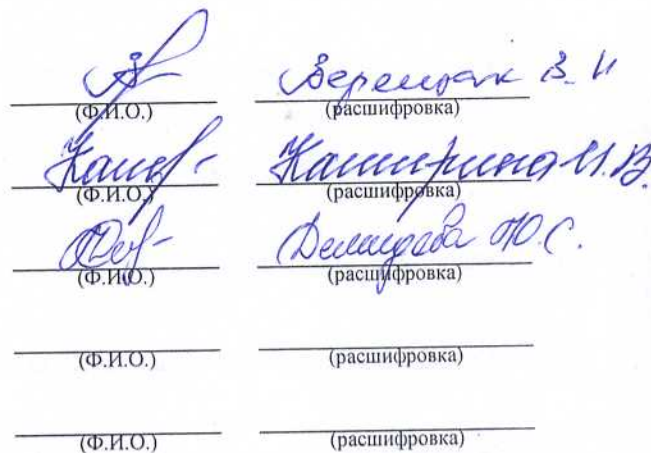 Верещак В. И
(Ф.И.О.) (расшифровка)
Каширина И.В.
(Ф.И.О.) (расшифровка)
Демидова Ю.С.
(Ф.И.О.) (расшифровка)
(Ф.И.О.) (расшифровка)
(Ф.И.О.) (расшифровка)